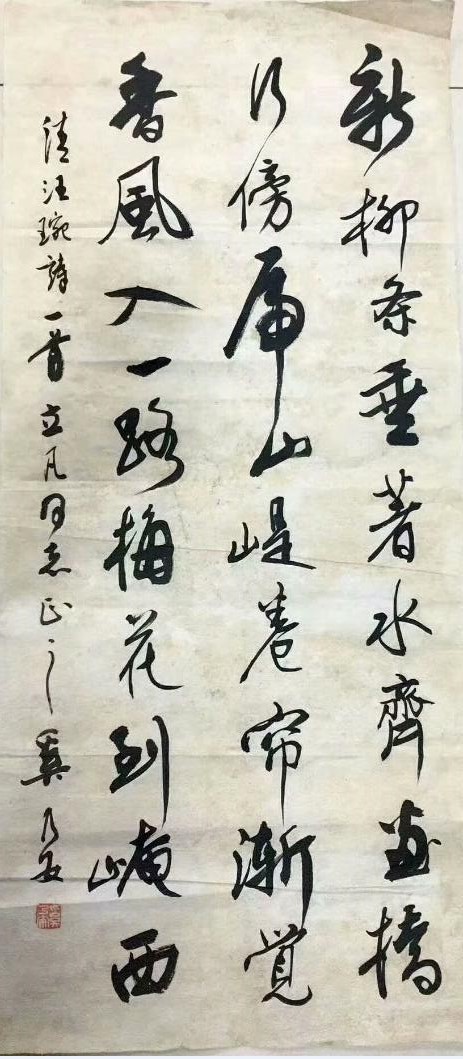 新柳条垂著水齊畫橋
行傍虎山崼卷帘漸覺
香風入一路梅花到崦西
清汪琬詩一首立凡同志正之奚乃安